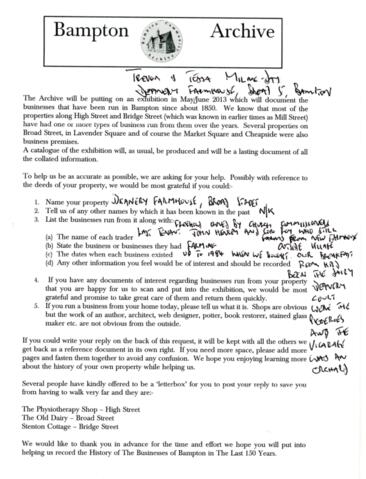 Bampton Archive
Trevor & Tessa Milne-Day
Deanery Farmhouse, Broad St, Bampton
The Archive will be putting on an exhibition in May/June 2013 which will document the
businesses that have been run in Bampton since about 1850. We know that most of the
properties along High Street and Bridge Street (which was known in earlier times as Mill Street)
have had one or more types of business run from them over the years. Several properties on
Broad Street, in Lavender Square and of course the Market Square and Cheapside were also
business premises.
A catalogue of the exhibition will, as usual, be produced and will be a lasting document of all
the collated information.
To help us be as accurate as possible, we are asking for your help. Possibly with reference to
the deeds of your property, we would be most grateful if you could:-
1. Name your property Deanery Farmhouse, Broad Street
2. Tell us of any other names by which it has been known in the past N/K
3. List the businesses run from it along with:- owned by Church Commissioners
(a) The name of each trader
(b) State the business or businesses they had Farming
(c) The dates when each business existed up to 1986 when we bought. Our breakfast
(d) Any other information you feel would be of interest and should be recorded room had
been the dairy
4. If you have any documents of interest regarding businesses run from your property
that you are happy for us to scan and put into the exhibition, we would be most
grateful and promise to take great care of them and return them quickly.
5. If you run a business from your home today, please tell us what it is. Shops are obvious
but the work of an author, architect, web designer, potter, book restorer, stained glass
maker etc. are not obvious from the outside.
Deanery
Court
were the
piggeries
and the
Vicarage
was an
orchard
If you could write your reply on the back of this request, it will be kept with all the others we
get back as a reference document in its own right. If you need more space, please add more
pages and fasten them together to avoid any confusion. We hope you enjoying learning more
about the history of your own property while helping us.
Several people have kindly offered to be a 'letterbox' for you to post your reply to save you
from having to walk very far and they are:-
The Physiotherapy Shop – High Street
The Old Dairy – Broad Street
Stenton Cottage – Bridge Street
We would like to thank you in advance for the time and effort we hope you will put into
helping us record the History of The Businesses of Bampton in The Last 150 Years.